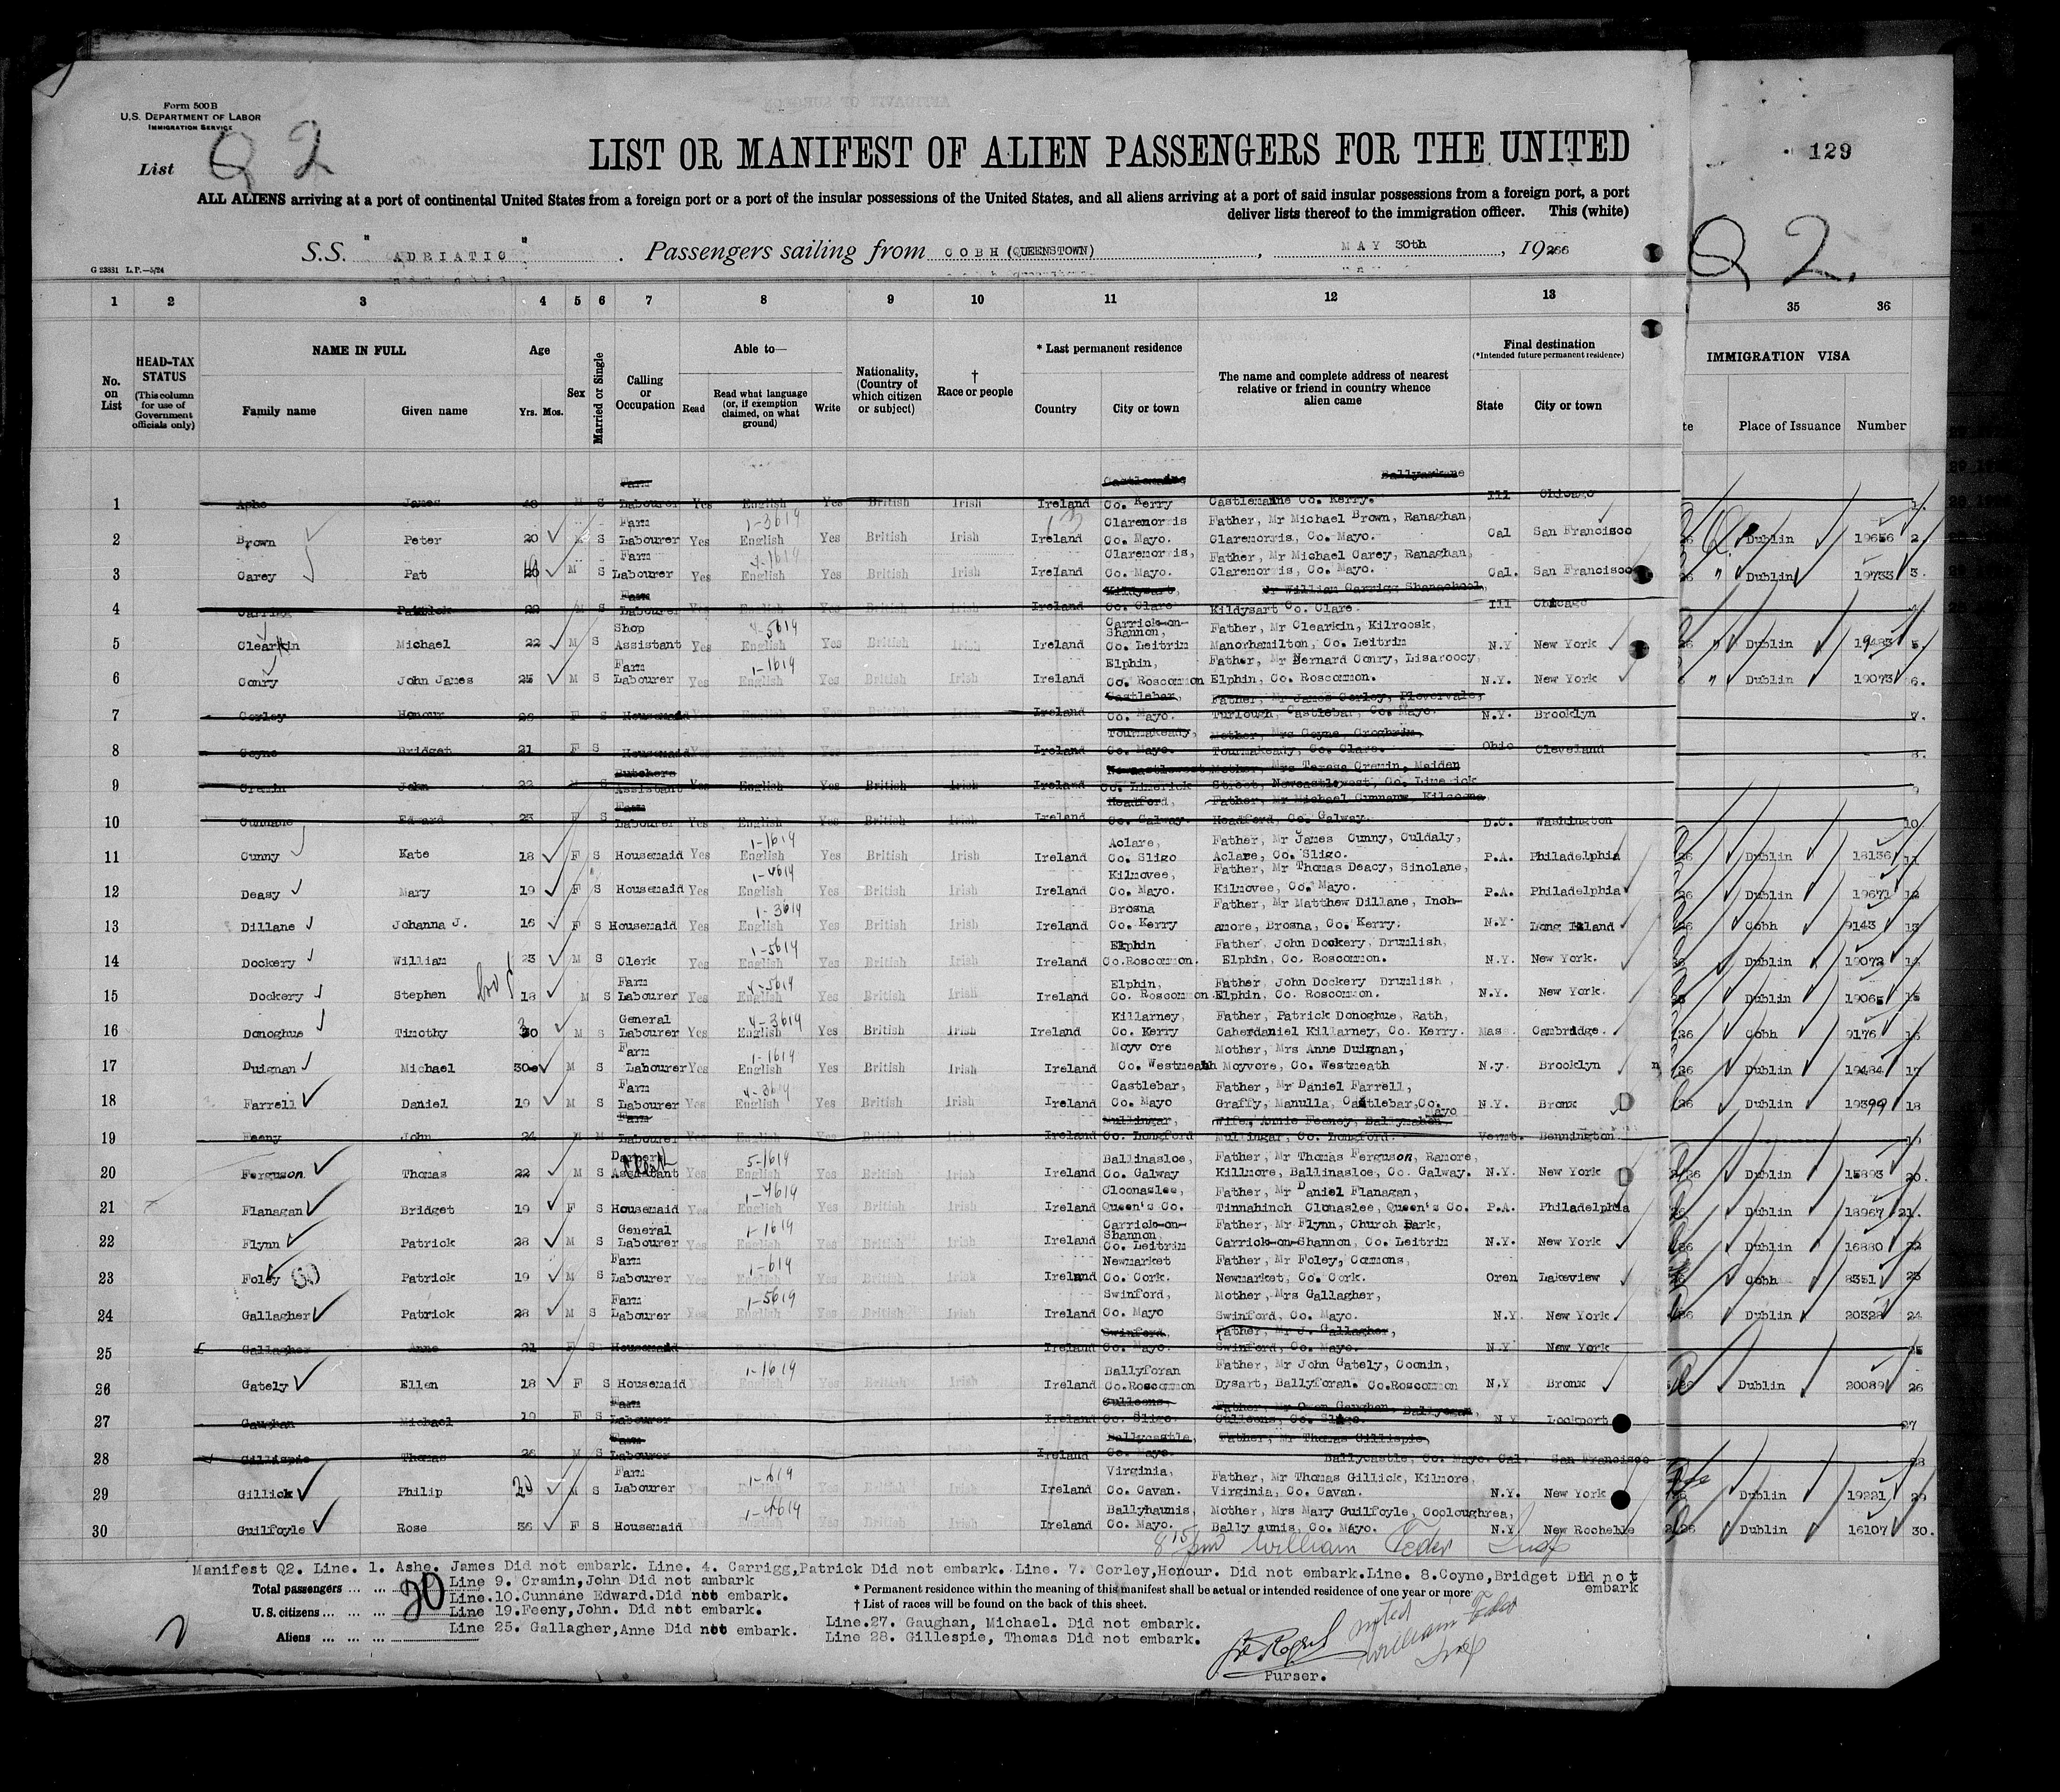 Form 500B
U.S. DEPARTMENT OF LABOR
IMMIGRATION SERVICE
List Q 2
129
LIST OR MANIFEST OF ALIEN PASSENGERS FOR THE UNITED
ALL ALIENS arriving at a port of continental United States from a foreign port or a port of the insular possessions of the United States, and all aliens arriving at a port of said insular possessions from a foreign port, a port
deliver lists thereof to the immigration officer. This (white)
S.S. "ADRIATIC". Passengers sailing from COBH (QUEENSTOWN), MAY 30th, 19266
Q 2.
G 23831 L.P.—5/24
1 2 3 4 5 6 7 8 9 10 11 12 13 35 36
No. on List
HEAD-TAX STATUS (This column for use of Government officials only)
NAME IN FULL Family name Given name
Age Yrs. Mos.
Sex
Married or Single
Calling or Occupation
Able to— Read Read what language (or, if exemption claimed, on what ground) Write
Nationality, (Country of which citizen or subject)
† Race or people
* Last permanent residence Country City or town
The name and complete address of nearest relative or friend in country whence alien came
Final destination (*Intended future permanent residence) State City or town
IMMIGRATION VISA
te Place of Issuance Number
1 Ashe James 40 M S Farm Labourer Yes English Yes British Irish Ireland Castlemaine Co. Kerry Castlemaine Co. Kerry. Ill Chicago 1.
2 Brown Peter 20 M S Farm Labourer Yes English 1-3614 Yes British Irish Ireland Claremorris Co. Mayo. Father, Mr Michael Brown, Ranaghan, Claremorris, Co. Mayo. Cal San Francisco 26 Dublin 19656 2.
3 Carey Pat M S Farm Labourer Yes English 4-1614 Yes British Irish Ireland Claremorris, Co. Mayo. Father, Mr Michael Carey, Ranaghan, Claremorris, Co. Mayo. Cal. San Francisco 26 " Dublin 19733 3.
4 Carrigg Patrick 29 M S Farm Labourer Yes English Yes British Irish Ireland Kildysart, Co. Clare Mr William Carrigg Shanachool, Kildysart Co. Clare. Ill Chicago
5 Clearkin Michael 22 M S Shop Assistant Yes English 4-5614 Yes British Irish Ireland Carrick-on-Shannon, Co. Leitrim Father, Mr Clearkin, Kilroosk, Manorhamilton, Co. Leitrim N.Y New York 26 " Dublin 19483 5.
6 Conry John James 25 M S Farm Labourer Yes English 1-1614 Yes British Irish Ireland Elphin, Co. Roscommon Father, Mr Bernard Conry, Lisaroocy, Elphin, Co. Roscommon. N.Y. New York " Dublin 19073 6.
7 Corley Honour 26 F S Housemaid Yes English Yes British Irish Ireland Castlebar, Co. Mayo. Father, Mr James Corley, Plovervale, Turlough, Castlebar, Co. Mayo. N.Y. Brooklyn 7.
8 Coyne Bridget 21 F S Housemaid Yes English Yes British Irish Ireland Tourmakeady, Co. Mayo. Mother, Mrs Coyne, Croghrim, Tourmakeady, Co. Clare. Ohio Cleveland 8.
9 Cramin John 22 M S Butchers Assistant Yes English Yes British Irish Ireland Newcastlewest, Co. Limerick Mother, Mrs Teresa Cramin, Maiden Street, Newcastlewest, Co. Limerick 9
10 Cunnane Edward 23 F S Farm Labourer Yes English Yes British Irish Ireland Headford, Co. Galway. Father, Mr Michael Cunnane, Kilcoona, Headford, Co. Galway. D.C. Washington 10.
11 Cunny Kate 18 F S Housemaid Yes English 1-1614 Yes British Irish Ireland Aclare, Co. Sligo Father, Mr James Cunny, Culdaly, Aclare, Co. Sligo. P.A. Philadelphia 26 Dublin 18136 11
12 Deasy Mary 19 F S Housemaid Yes English 1-4614 Yes British Irish Ireland Kilmovee, Co. Mayo. Father, Mr Thomas Deacy, Sinolane, Kilmovee, Co. Mayo. P.A. Philadelphia 26 Dublin 19671 12
13 Dillane Johanna J. 16 F S Housemaid Yes English 1-3614 Yes British Irish Ireland Brosna Co. Kerry Father, Mr Matthew Dillane, Inch-amore, Brosna, Co. Kerry. N.Y. Long Island 26 Cobh 9143 13
14 Dockery William 23 M S Clerk Yes English 1-5614 Yes British Irish Ireland Elphin Co.Roscommon. Father, John Dockery, Drumlish, Elphin, Co. Roscommon. N.Y. New York. Dublin 19072 14
15 Dockery Stephen 18 M S Farm Labourer Yes English 4-5614 Yes British Irish Ireland Elphin, Co. Roscommon Father, John Dockery Drumlish, Elphin, Co. Roscommon. N.Y. New York. Dublin 19065 15
16 Donoghue Timothy 30 M S General Labourer Yes English 4-3614 Yes British Irish Ireland Killarney, Co. Kerry Father, Patrick Donoghue, Rath, Caherdaniel Killarney, Co. Kerry. Mass. Cambridge. 26 Cobh 9176 16
17 Duignan Michael 30 M S Farm Labourer Yes English 1-1614 Yes British Irish Ireland Moyv ore Co. Westmeath Mother, Mrs Anne Duignan, Moyvore, Co. Westmeath N.y. Brooklyn n 26 Dublin 19484 17
18 Farrell Daniel 19 M S Farm Labourer Yes English 4-3614 Yes British Irish Ireland Castlebar, Co. Mayo Father, Mr Daniel Farrell, Graffy, Manulla, Castlebar, Co. Mayo N.Y. Bronx 26 Dublin 19399 18
19 Feeny John 24 M M Farm Labourer Yes English Yes British Irish Ireland Mullingar, Co. Longford Wife, Annie Feeney, Ballymahon Mullingar, Co. Longford. Vermt. Bennington
20 Ferguson Thomas 22 M S Draper Assistant Clerk Yes English 5-1614 Yes British Irish Ireland Ballinasloe, Co. Galway Father, Mr Thomas Ferguson, Ramore, Killmore, Ballinasloe, Co. Galway. N.Y. New York 26 Dublin 15893 20.
21 Flanagan Bridget 19 F S Housemaid Yes English 1-4614 Yes British Irish Ireland Cloonaslee, Queen's Co. Father, Mr Daniel Flanagan, Tinnahinch Clonaslee, Queen's Co. P.A. Philadelphia 26 Dublin 18967 21.
22 Flynn Patrick 28 M S General Labourer Yes English 1-1614 Yes British Irish Ireland Carrick-on-Shannon, Co. Leitrim Father, Mr Flynn, Church Park, Carrick-on-Shannon, Co. Leitrim N.Y. New York 26 Dublin 16880 22
23 Foley Patrick 19 M S Farm Labourer Yes English 1-614 Yes British Irish Ireland Newmarket Co. Cork. Father, Mr Foley, Commons, Newmarket, Co. Cork. Oren Lakeview Cobh 8351 23
24 Gallagher Patrick 28 M S Farm Labourer Yes English 1-5614 Yes British Irish Ireland Swinford, Co. Mayo Mother, Mrs Gallagher, Swinford, Co. Mayo. N.Y. New York. 26 Dublin 20328 24
25 Gallagher Anne 21 F S Housemaid Ireland Swinford, Co. Mayo. Father, Mr J. Gallagher, Swinford, Co. Mayo. N.Y New York 25
26 Gately Ellen 18 F S Housemaid Yes English 1-1614 Yes British Irish Ireland Ballyforan Co.Roscommon Father, Mr John Gately, Coomin, Dysart, Ballyforan. Co.Roscommon N.Y Bronx 26 Dublin 20089 26
27 Gaughan Michael 19 F S Farm Labourer Ireland Culleens, Co. Sligo. Father, Mr Owen Gaughan, Culleens, Co. Sligo. N.Y Lockport 27
28 Gillispie Thomas 26 M S Farm Labourer Ireland Ballycastle, Co. Mayo. Father, Mr Thomas Gillispie, Ballycastle, Co. Mayo. Cal. San Francisco 28
29 Gillick Philip M S Farm Labourer Yes English 1-1614 Yes British Irish Ireland Virginia, Co. Cavan. Father, Mr Thomas Gillick, Kilmore, Virginia, Co. Cavan. N.Y. New York Dublin 19221 29
30 Guilfoyle Rose 36 F S Housemaid Yes English 1-4614 Yes British Irish Ireland Ballyhaunis, Co. Mayo. Mother, Mrs Mary Guilfoyle, Cooloughrea, Bally aunis, Co. Mayo. N.Y New Rochelle 26 Dublin 16107 30.
8 15/pm William Feder Insp
Manifest Q2. Line. 1. Ashe. James Did not embark. Line. 4. Carrigg,Patrick Did not embark. Line. 7. Corley,Honour. Did not embark.Line. 8.Coyne,Bridget Did not embark
Total passengers ... ... 20 Line 9. Cramin,John Did not ambark
Line.10.Cunnane Edward.Did not embark.
U.S. citizens ... ... Line 19.Feeny,John. Did not embark.
Aliens ... ... ... Line 25. Gallagher,Anne Did not embark.
Line.27. Gaughan, Michael. Did not embark.
Line 28. Gillespie, Thomas Did not embark.
* Permanent residence within the meaning of this manifest shall be actual or intended residence of one year or more
† List of races will be found on the back of this sheet.
noted
William Feder
Insp
Purser.